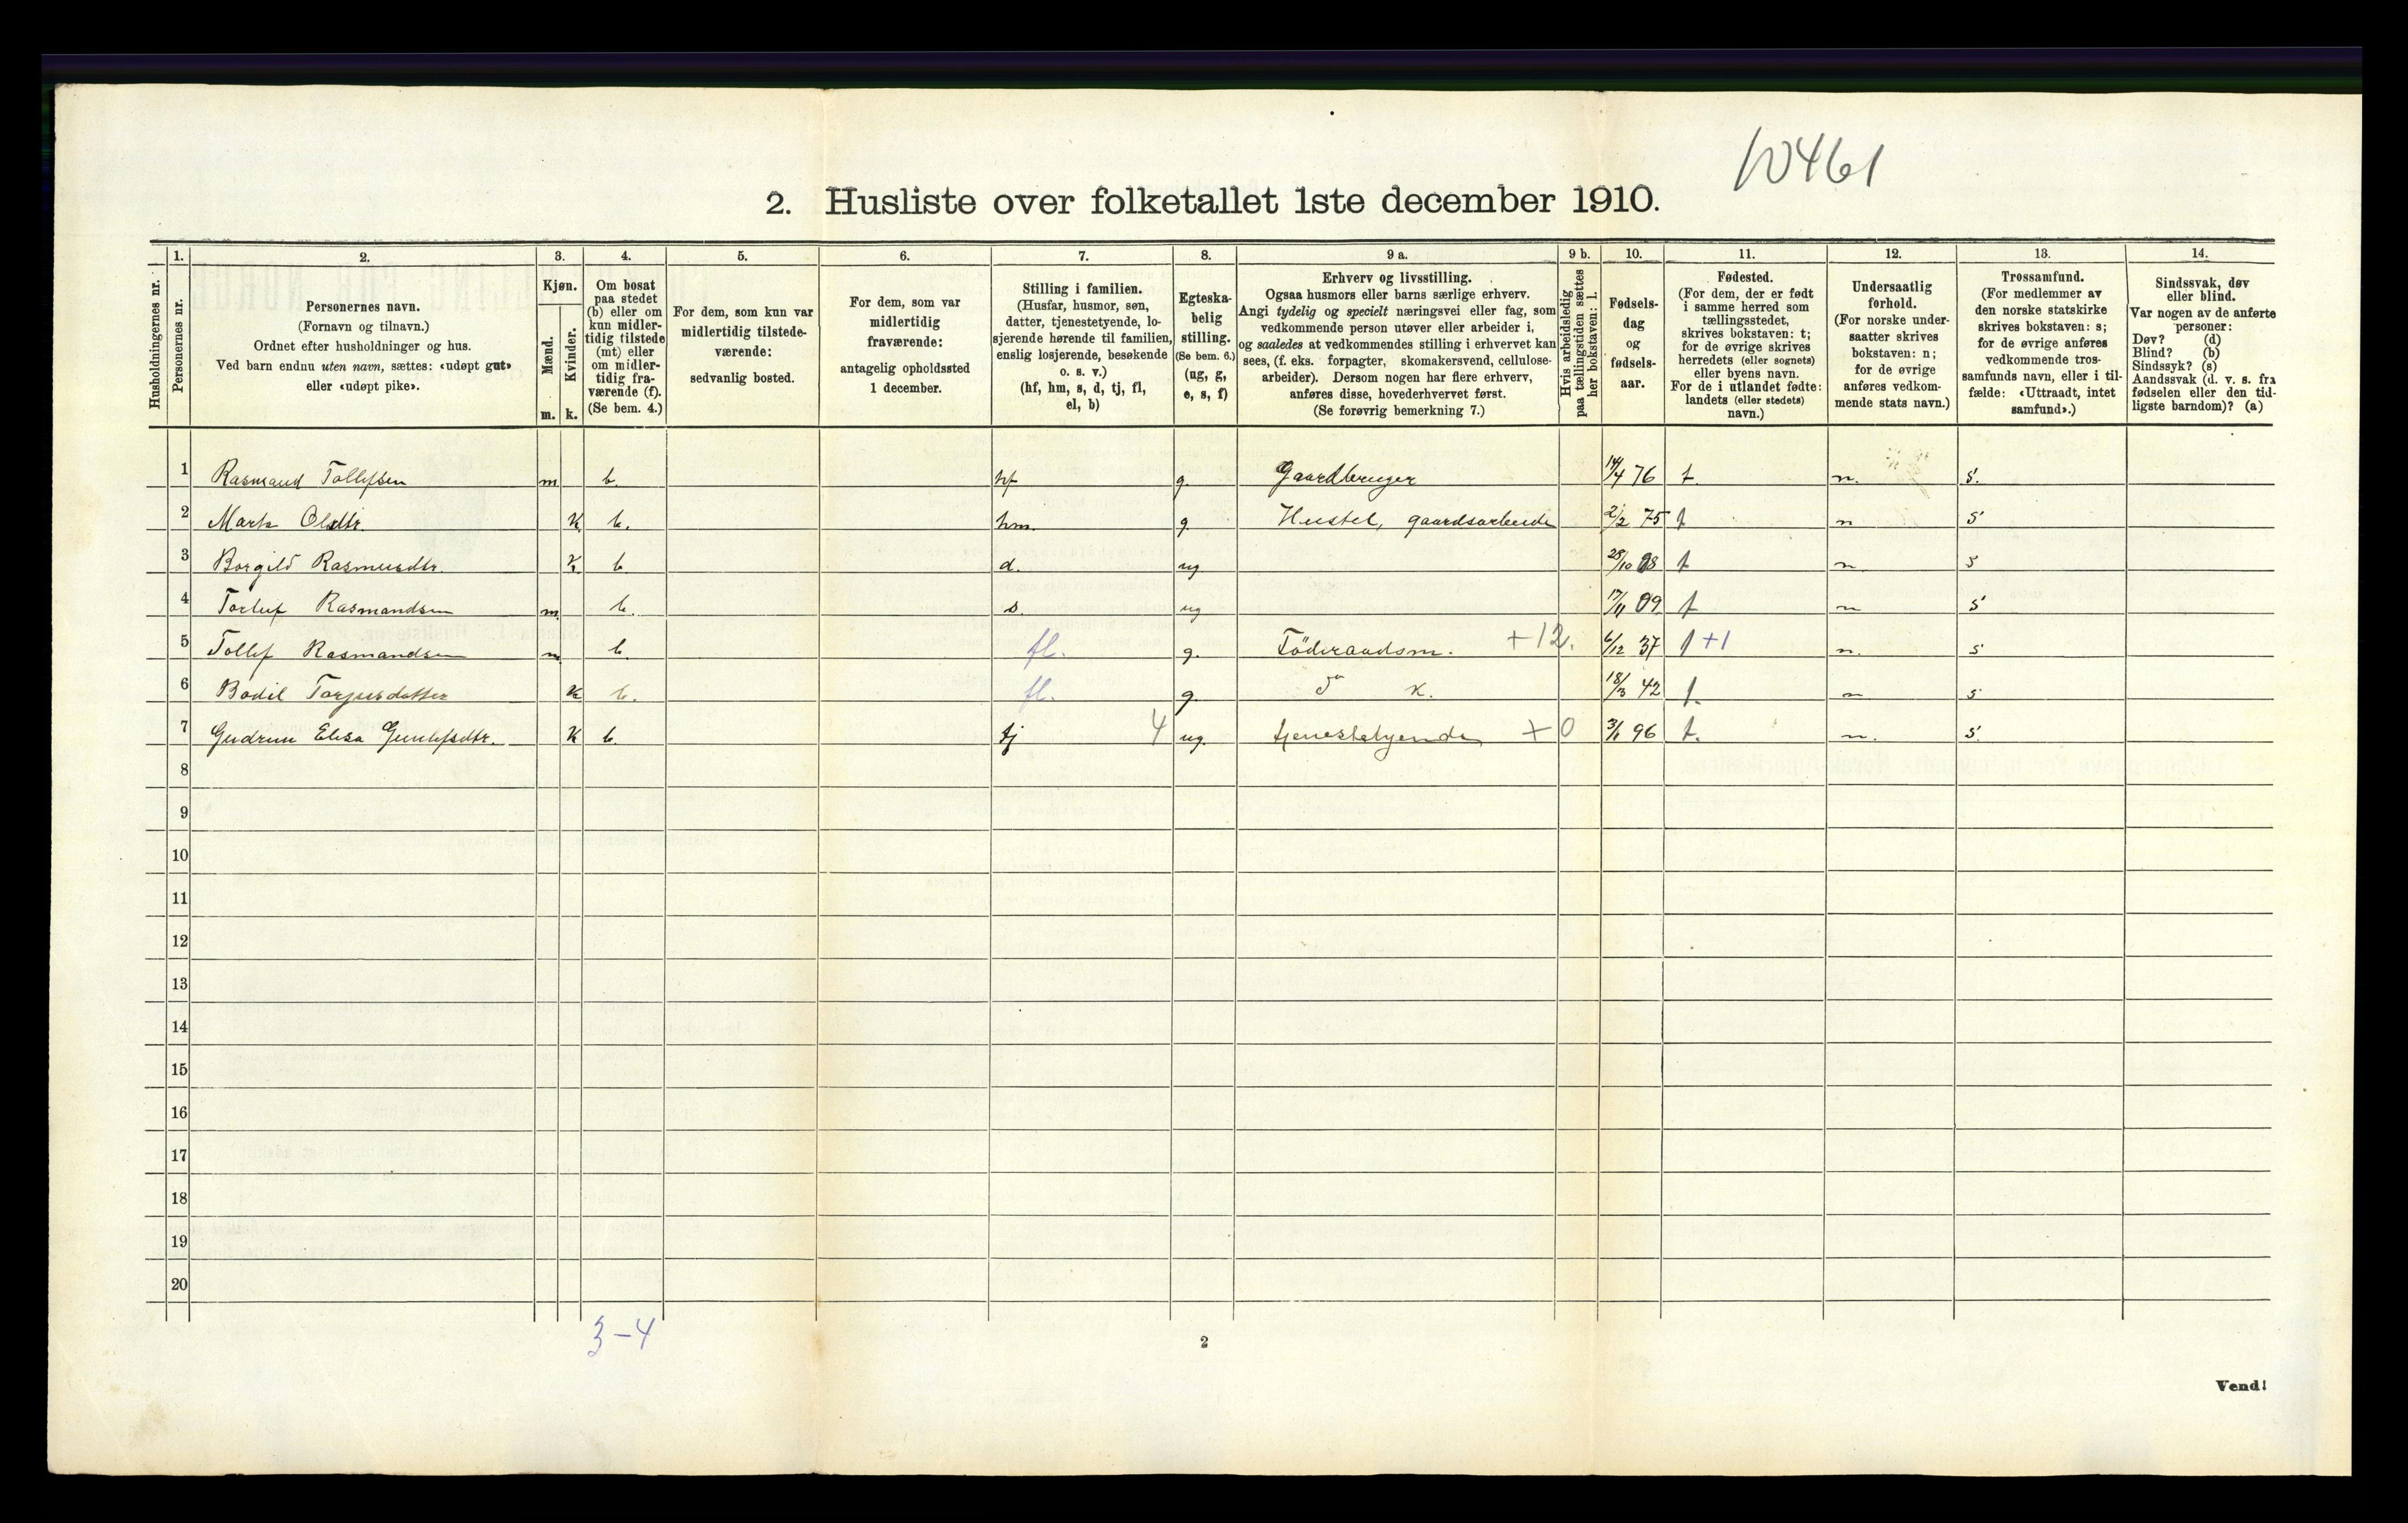 10461
2. Husliste over folketallet 1ste december 1910.
Husholdningernes nr.
1. Personernes nr.
2. Personernes navn.
(Fornavn og tilnavn.)
Ordnet efter husholdninger og hus.
Ved barn endnu uten navn, sættes: «udøpt gut»
eller «udøpt pike».
3. Kjøn.
Mænd. m.
Kvinder. k.
4. Om bosat
paa stedet
(b) eller om
kun midler-
tidig tilstede
(mt) eller
om midler-
tidig fra-
værende (f).
(Se bem. 4.)
5. For dem, som kun var
midlertidig tilstede-
værende:
sedvanlig bosted.
6. For dem, som var
midlertidig
fraværende:
antagelig opholdssted
1 december.
7. Stilling i familien.
(Husfar, husmor, søn,
datter, tjenestetyende, lo-
sjerende hørende til familien,
enslig losjerende, besøkende
o. s. v.)
(hf, hm, s, d, tj, fl,
el, b)
8. Egteska-
belig
stilling.
(Se bem. 6.)
(ug, g,
e, s, f)
9 a. Erhverv og livsstilling.
Ogsaa husmors eller barns særlige erhverv.
Angi tydelig og specielt næringsvei eller fag, som
vedkommende person utøver eller arbeider i,
og saaledes at vedkommendes stilling i erhvervet kan
sees, (f. eks. forpagter, skomakersvend, cellulose-
arbeider). Dersom nogen har flere erhverv,
anføres disse, hovederhvervet først.
(Se forøvrig bemerkning 7.)
9 b. Hvis arbeidsledig
paa tællingstiden sættes
her bokstaven: l.
10. Fødsels-
dag
og
fødsels-
aar.
11. Fødested.
(For dem, der er født
i samme herred som
tællingsstedet,
skrives bokstaven: t;
for de øvrige skrives
herredets (eller sognets)
eller byens navn.
For de i utlandet fødte:
landets (eller stedets)
navn.)
12. Undersaatlig
forhold.
(For norske under-
saatter skrives
bokstaven: n;
for de øvrige
anføres vedkom-
mende stats navn.)
13. Trossamfund.
(For medlemmer av
den norske statskirke
skrives bokstaven: s;
for de øvrige anføres
vedkommende tros-
samfunds navn, eller i til-
fælde: «Uttraadt, intet
samfund».)
14. Sindssvak, døv
eller blind.
Var nogen av de anførte
personer:
Døv? (d)
Blind? (b)
Sindssyk? (s)
Aandssvak (d. v. s. fra
fødselen eller den tid-
ligste barndom)? (a)
1 Rasmund Tollefsen m b. hf g. Gaardbruger 14/4 76 t. n. s.
2 Olsdtr. k b. hm. g. Hustel, gaardsarbeide 2/2 75 t n s
3 Borgild Rasmusdtr. k b. d. ug 28/10 08 t n s
4 Rasmandsen m b. s. ug 17/11 09 t n s
5 Tollef Rasmandsen m b. fl. g. Föderaadsm. +12. 6/12 37 t +1 n. s
6 Bodil Torjusdatter k b. fl. g. do k. 18/3 42 t. n s
7 Gudrun Elisa Gunlefsdtr. k b. tj 4 ug. tjenestetyende +0 3/1 96 t. n. s.
8
9
10
11
12
13
14
15
16
17
18
19
20
3-4
2
Vend!